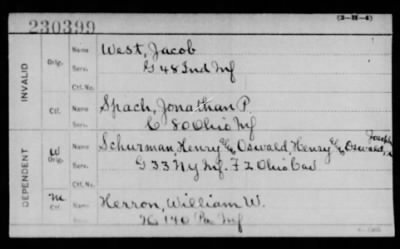 (3-H-4)
230399
INVALID
Orig.
Name West, Jacob
Serv. G 48 Ind Inf
Ctf. No.
Ctf.
Name Spach, Jonathan P.
Serv. C 80 Ohio Inf
DEPENDENT
W
Orig.
Name Schurman, Henry Oswald, Henry Oswald, Joseph
Serv. G 33 N Y Inf. F 2 Ohio Cav
Ctf. No.
M
Ctf.
Name Herron, William W.
Serv. K 140 Pa Inf